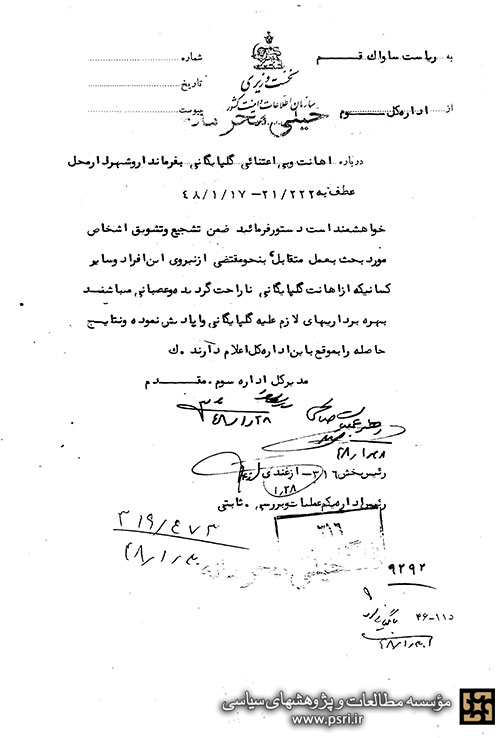 به ریاست ساواک قم
شماره
نخست وزیری
تاریخ
سازمان اطلاعات و امنیت کشور
از اداره کل سوم
پیوست
خیلی محرمانه
درباره اهانت وبی اعتنائی گلپایگانی بفرماندار و شهردار محل
عطف به ۲۱/۲۲۲-۴۸/۱/۱۷
خواهشمند است دستور فرمائید ضمن تشجیع و تشویق اشخاص
مورد بحث بعمل متقابل بنحو مقتضی از نیروی این افراد و سایر
کسانیکه از اهانت گلپایگانی ناراحت گردیده و عصبانی میباشند
بهره برداریهای لازم علیه گلپایگانی و ایادیش نموده و نتایج
حاصله را بموقع باین اداره کل اعلام دارند . ک
مدیر کل اداره سوم . مقدم
۴۸/۱/۲۸
رهبر عملیات صالحی
رئیس بخش ۳۱۶ - ازغندی
۱/۲۸
رئیس اداره یکم عملیات و بررسی . ثابتی
۳۱۹/۴۷۳
۳۱۶
خیلی محرمانه
۹۲۹۲
۹
۴۶-۱۱۵
مؤسسه مطالعات و پژوهشهای سیاسی
www.psri.ir